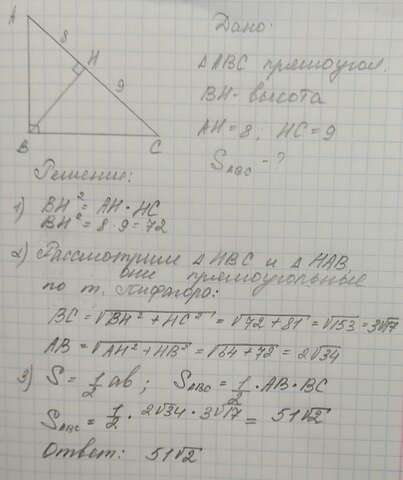 A
8
H
9
B
C
Дано:
△ABC прямоугол.
BH - высота
AH = 8 ; HC = 9
S_ABC - ?
Решение:
1) BH² = AH · HC
BH² = 8 · 9 = 72
2) Рассмотрим △HBC и △HAB,
они прямоугольные
по т. Пифагора:
BC = √BH² + HC² = √72 + 81 = √153 = 3√17
AB = √AH² + HB² = √64 + 72 = 2√34
3) S = 1/2 ab ; S_ABC = 1/2 · AB · BC
S_ABC = 1/2 · 2√34 · 3√17 = 51√2
Ответ: 51√2